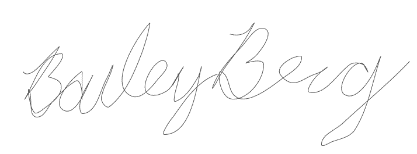 Bailey Berg